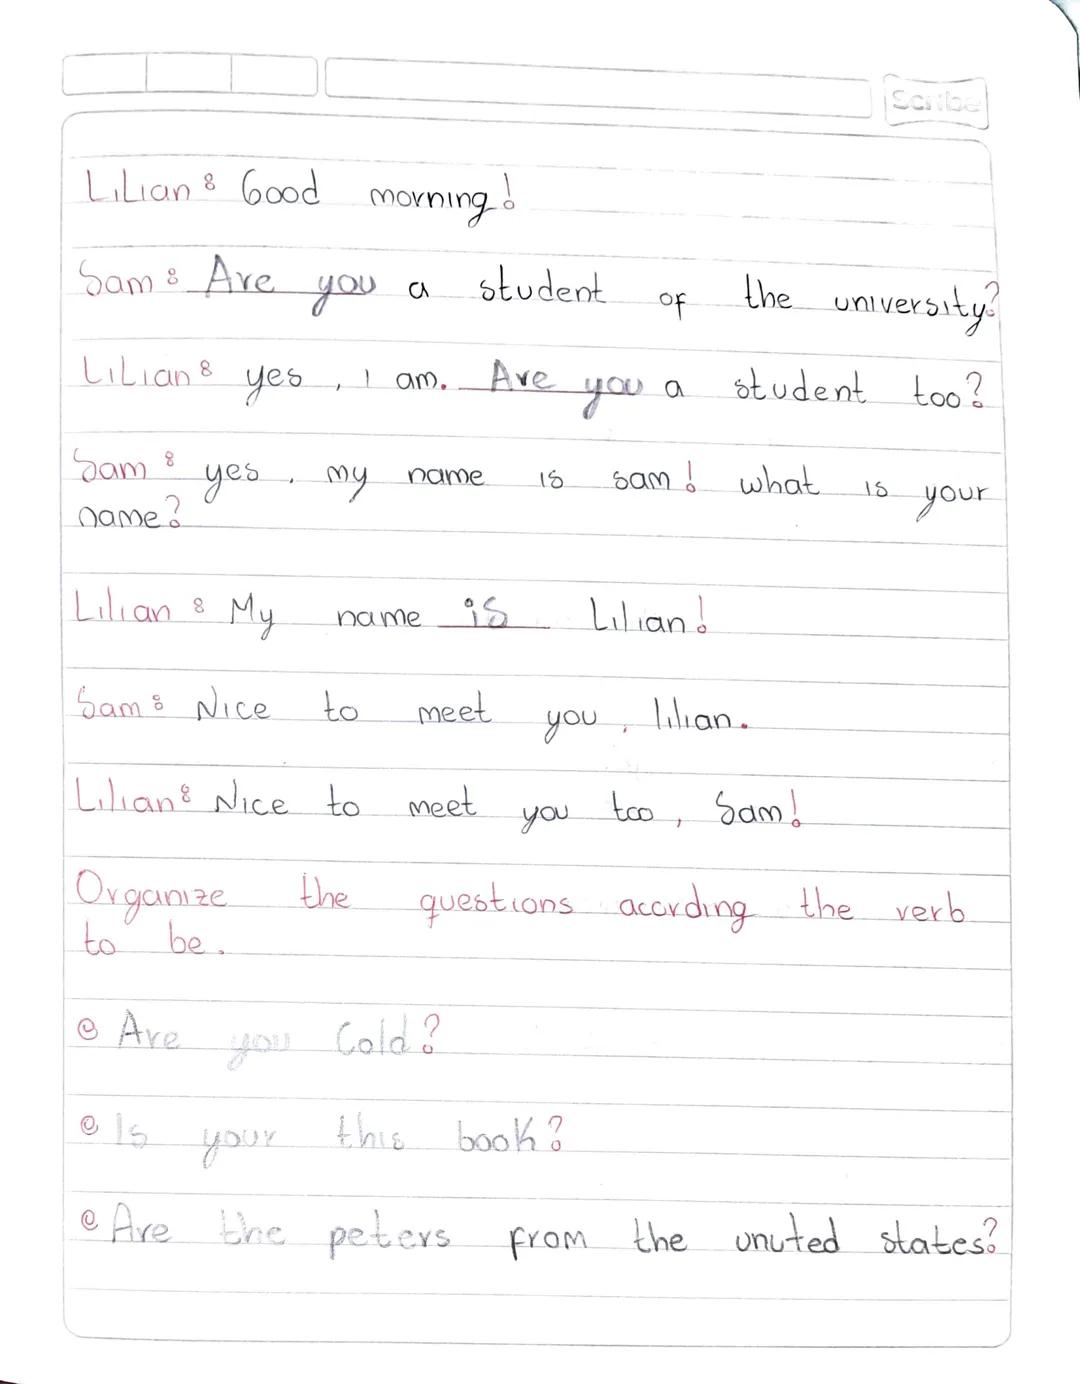 Scribe
Lilian: Good morning!
Sam: Are you a student of the university?
Lilian: yes, I am. Are you a student too?
Sam: yes, my name is sam! what is your
name?
Lilian: My name is Lilian!
Sam: Nice to meet you, lilian.
Lilian: Nice to meet you too, Sam!
Organize the questions accrding the verb
to be.
Are you Cold?
Is your this book?
Are the peters from the unuted states?